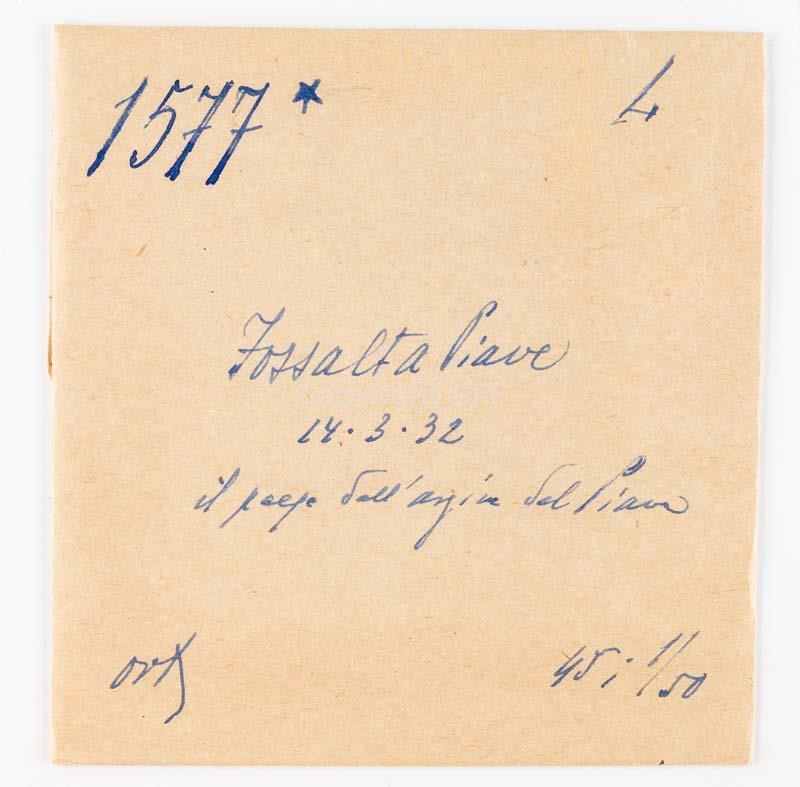 1577* 4
Fossalta Piave
14·3·32
il paese dall'argine del Piave
45; 1/50